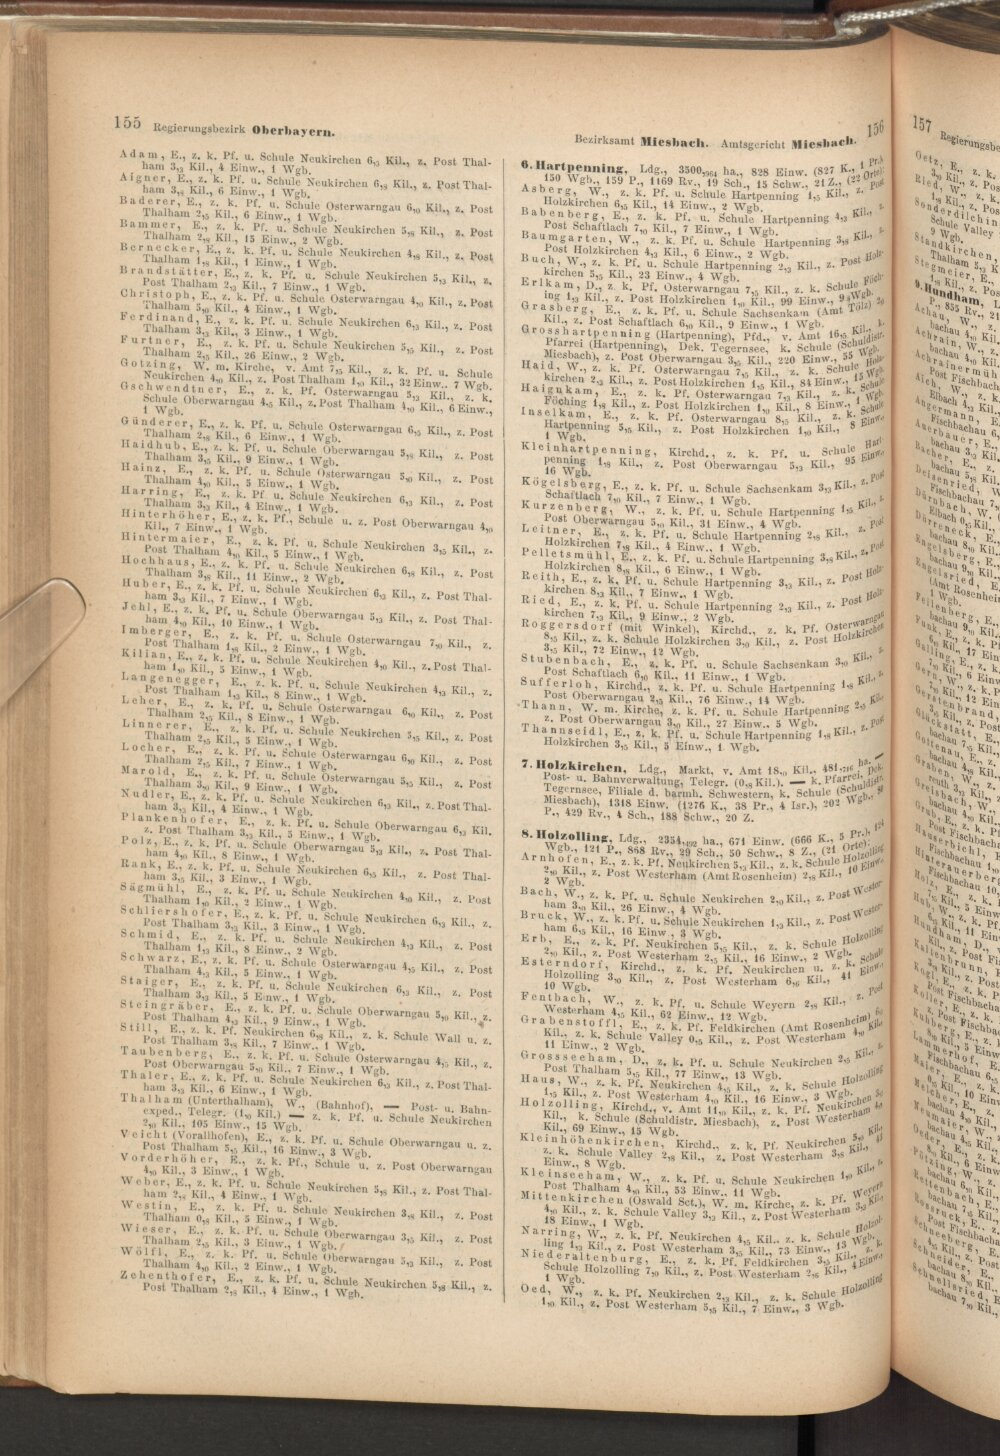 155 Regierungsbezirk Oberbayern.
Adam, E., z. k. Pf. u. Schule Neukirchen 6,3 Kil., z. Post Thal-
ham 3,3 Kil., 4 Einw., 1 Wgb.
Aigner, E., z. k. Pf. u. Schule Neukirchen 6,8 Kil., z. Post Thal-
ham 3,8 Kil., 6 Einw., 1 Wgb.
Baderer, E., z. k. Pf. u. Schule Osterwarngau 6,0 Kil., z. Post
Thalham 2,5 Kil., 6 Einw., 1 Wgb.
Bammer, E., z. k. Pf. u. Schule Neukirchen 5,8 Kil., z. Post
Thalham 2,8 Kil., 15 Einw., 2 Wgb.
Bernecker, E., z. k. Pf. u. Schule Neukirchen 4,8 Kil., z. Post
Thalham 1,8 Kil., 1 Einw., 1 Wgb.
Brandstätter, E., z. k. Pf. u. Schule Neukirchen 5,3 Kil., z.
Post Thalham 2,3 Kil., 7 Einw., 1 Wgb.
Christoph, E., z. k. Pf. u. Schule Osterwarngau 4,0 Kil., z. Post
Thalham 5,0 Kil., 4 Einw., 1 Wgb.
Ferdinand, E., z. k. Pf. u. Schule Neukirchen 6,3 Kil., z. Post
Thalham 3,3 Kil., 3 Einw., 1 Wgb.
Furtner, E., z. k. Pf. u. Schule Neukirchen 5,5 Kil., z. Post
Thalham 2,5 Kil., 26 Einw., 2 Wgb.
Gotzing, W. m. Kirche, v. Amt 7,5 Kil., z. k. Pf. u. Schule
Neukirchen 4,0 Kil., z. Post Thalham 1,0 Kil., 32 Einw., 7 Wgb.
Gschwendtner, E., z. k. Pf. Osterwarngau 5,3 Kil., z. k.
Schule Oberwarngau 4,5 Kil., z. Post Thalham 4,0 Kil., 6 Einw.,
1 Wgb.
Günderer, E., z. k. Pf. u. Schule Osterwarngau 6,5 Kil., z. Post
Thalham 2,8 Kil., 6 Einw., 1 Wgb.
Haidhub, E., z. k. Pf. u. Schule Oberwarngau 5,8 Kil., z. Post
Thalham 3,5 Kil., 9 Einw., 1 Wgb.
Hainz, E., z. k. Pf. u. Schule Osterwarngau 5,0 Kil., z. Post
Thalham 4,0 Kil., 5 Einw., 1 Wgb.
Harring, E., z. k. Pf u. Schule Neukirchen 6,3 Kil., z. Post
Thalham 3,3 Kil., 4 Einw., 1 Wgb.
Hinterhöher, E., z. k. Pf., Schule u. z. Post Oberwarngau 4,0
Kil., 7 Einw., 1 Wgb.
Hintermaier, E., z. k. Pf. u. Schule Neukirchen 3,5 Kil., z.
Post Thalham 4,0 Kil., 5 Einw., 1 Wgb.
Hochhaus, E., z. k. Pf. u. Schule Neukirchen 6,8 Kil., z. Post
Thalham 3,8 Kil., 11 Einw., 2 Wgb.
Huber, E., z. k. Pf. u. Schule Neukirchen 6,3 Kil., z. Post Thal-
ham 3,3 Kil., 7 Einw., 1 Wgb.
Jehl, E., z. k. Pf. u. Schule Oberwarngau 5,3 Kil., z. Post Thal-
ham 4,0 Kil., 10 Einw., 1 Wgb.
Imberger, E., z. k. Pf. u. Schule Osterwarngau 7,0 Kil., z.
Post Thalham 1,8 Kil., 2 Einw., 1 Wgb.
Kilian, E., z. k. Pf. u. Schule Neukirchen 4,0 Kil., z. Post Thal-
ham 1,0 Kil., 5 Einw., 1 Wgb.
Langenegger, E., z. k. Pf. u. Schule Neukirchen 4,3 Kil., z.
Post Thalham 1,3 Kil., 8 Einw., 1 Wgb.
Leher, E., z. k. Pf. u. Schule Osterwarngau 6,0 Kil., z. Post
Thalham 2,5 Kil., 8 Einw., 1 Wgb.
Linnerer, E., z. k. Pf. u. Schule Neukirchen 5,5 Kil., z. Post
Thalham 2,5 Kil., 5 Einw., 1 Wgb.
Locher, E., z. k. Pf. u. Schule Osterwarngau 6,0 Kil., z. Post
Thalham 2,5 Kil., 7 Einw., 1 Wgb.
Marold, E., z. k. Pf. u. Schule Osterwarngau 5,5 Kil., z. Post
Thalham 3,0 Kil., 9 Einw., 1 Wgb.
Nudler, E., z. k. Pf. u. Schule Neukirchen 6,3 Kil., z. Post Thal-
ham 3,3 Kil., 4 Einw., 1 Wgb.
Plankenhofer, E., z. k. Pf. u. Schule Oberwarngau 6,3 Kil.
z. Post Thalham 3,3 Kil., 5 Einw., 1 Wgb.
Polz, E., z. k. Pf. u. Schule Oberwarngau 5,3 Kil., z. Post Thal-
ham 4,0 Kil., 8 Einw., 1 Wgb.
Rank, E., z. k. Pf. u. Schule Neukirchen 6,5 Kil., z. Post Thal-
ham 3,5 Kil., 3 Einw., 1 Wgb.
Sägmühl, E., z. k. Pf. u. Schule Neukirchen 4,0 Kil., z. Post
Thalham 1,0 Kil., 2 Einw., 1 Wgb.
Schliershofer, E., z. k. Pf. u. Schule Neukirchen 6,3 Kil., z.
Post Thalham 3,3 Kil., 3 Einw., 1 Wgb.
Schmid, E., z. k. Pf. u. Schule Neukirchen 4,3 Kil., z. Post
Thalham 1,3 Kil., 8 Einw., 2 Wgb.
Schwarz, E., z. k. Pf. u. Schule Osterwarngau 4,5 Kil., z. Post
Thalham 4,3 Kil., 5 Einw., 1 Wgb.
Staiger, E., z. k. Pf. u. Schule Neukirchen 6,3 Kil., z. Post
Thalham 3,3 Kil., 5 Einw., 1 Wgb.
Steingräber, E., z. k. Pf. u. Schule Oberwarngau 5,0 Kil., z.
Post Thalham 4,3 Kil., 9 Einw., 1 Wgb.
Still, E., z. k. Pf. Neukirchen 6,8 Kil., z. k. Schule Wall u. z.
Post Thalham 3,8 Kil., 7 Einw., 1 Wgb.
Taubenberg, E., z. k. Pf. u. Schule Osterwarngau 4,5 Kil., z.
Post Oberwarngau 5,0 Kil., 7 Einw., 1 Wgb.
Thaler, E., z. k. Pf. u. Schule Neukirchen 6,3 Kil., z. Post Thal-
ham 3,3 Kil., 6 Einw., 1 Wgb.
Thalham (Unterthalham), W., (Bahnhof), — Post- u. Bahn-
exped., Telegr. (1,0 Kil.) — z. k. Pf. u. Schule Neukirchen
2,0 Kil., 105 Einw., 15 Wgb.
Veicht (Vorallhofen), E., z. k. Pf. u. Schule Oberwarngau u. z.
Post Thalham 5,5 Kil., 16 Einw., 3 Wgb.
Vorderhöher, E., z. k. Pf., Schule u. z. Post Oberwarngau
4,0 Kil., 3 Einw., 1 Wgb.
Weber, E., z. k. Pf. u. Schule Neukirchen 5,8 Kil., z. Post Thal-
ham 2,8 Kil., 4 Einw., 1 Wgb.
Westin, E., z. k. Pf. u. Schule Neukirchen 3,8 Kil., z. Post
Thalham 0,8 Kil., 5 Einw., 1 Wgb.
Wieser, E., z. k. Pf. u. Schule Oberwarngau 3,5 Kil., z. Post
Thalham 2,5 Kil., 3 Einw., 1 Wgb.
Wölfl, E., z. k. Pf. u. Schule Oberwarngau 5,3 Kil., z. Post
Thalham 4,0 Kil., 2 Einw., 1 Wgb.
Zehenthofer, E., z. k. Pf. u. Schule Neukirchen 5,8 Kil., z.
Post Thalham 2,8 Kil., 4 Einw., 1 Wgb.
Bezirksamt Miesbach. Amtsgericht Miesbach. 156
6. Hartpenning, Ldg., 3500,984 ha., 828 Einw. (827 K., 1 Pr.),
150 Wgb., 159 P., 1169 Rv., 19 Sch., 15 Schw., 21 Z., (22 Orte):
Asberg, W., z. k. Pf. u. Schule Hartpenning 1,5 Kil., z. Post
Holzkirchen 6,5 Kil., 14 Einw., 2 Wgb.
Babenberg, E., z. k. Pf. u. Schule Hartpenning 4,3 Kil., z.
Post Schaftlach 7,0 Kil., 7 Einw., 1 Wgb.
Baumgarten, W., z. k. Pf. u. Schule Hartpenning 3,8 Kil., z.
Post Holzkirchen 4,3 Kil., 6 Einw., 2 Wgb.
Buch, W., z. k. Pf. u. Schule Hartpenning 2,3 Kil., z. Post Holz-
kirchen 5,5 Kil., 23 Einw., 4 Wgb.
Erlkam, D., z. k. Pf. Osterwarngau 7,5 Kil., z. k. Schule Föch-
ing 1,3 Kil., z. Post Holzkirchen 1,0 Kil., 99 Einw., 9 Wgb.
Grasberg, E., z. k. Pf. u. Schule Sachsenkam (Amt Tölz) 2,0
Kil., z. Post Schaftlach 6,0 Kil., 9 Einw., 1 Wgb.
Grosshartpenning (Hartpenning), Pfd., v. Amt 16,5 Kil., k.
Pfarrei (Hartpenning), Dek. Tegernsee, k. Schule (Schuldistr.
Miesbach), z. Post Oberwarngau 3,5 Kil., 220 Einw., 55 Wgb.
Haid, W., z. k. Pf. Osterwarngau 7,5 Kil., z. k. Schule Holz-
kirchen 2,3 Kil., z. Post Holzkirchen 1,5 Kil., 84 Einw., 15 Wgb.
Haignkam, E., z. k. Pf. Osterwarngau 7,3 Kil., z. k. Schule
Föching 1,8 Kil., z. Post Holzkirchen 1,0 Kil., 8 Einw., 1 Wgb.
Inselkam, E., z. k. Pf. Osterwarngau 8,5 Kil., z. k. Schule
Hartpenning 5,5 Kil., z. Post Holzkirchen 1,0 Kil., 8 Einw.,
1 Wgb.
Kleinhartpenning, Kirchd., z. k. Pf. u. Schule Hart-
penning 1,8 Kil., z. Post Oberwarngau 5,3 Kil., 95 Einw.,
16 Wgb.
Kögelsberg, E., z. k. Pf. u. Schule Sachsenkam 3,3 Kil., z. Post
Schaftlach 7,0 Kil., 7 Einw., 1 Wgb.
Kurzenberg, W., z. k. Pf. u. Schule Hartpenning 1,5 Kil., z.
Post Oberwarngau 5,0 Kil., 31 Einw., 4 Wgb.
Leitner, E., z. k. Pf. u. Schule Hartpenning 2,8 Kil., z. Post
Holzkirchen 7,8 Kil., 4 Einw., 1 Wgb.
Pelletsmühl, E., z. k. Pf. u. Schule Hartpenning 3,8 Kil., z. Post
Holzkirchen 8,8 Kil., 6 Einw., 1 Wgb.
Reith, E., z. k. Pf. u. Schule Hartpenning 3,3 Kil., z. Post Holz-
kirchen 8,3 Kil., 7 Einw., 1 Wgb.
Ried, E., z. k. Pf. u. Schule Hartpenning 2,3 Kil., z. Post Holz-
kirchen 7,3 Kil., 9 Einw., 2 Wgb.
Roggersdorf (mit Winkel), Kirchd., z. k. Pf. Osterwarngau
8,5 Kil., z. k. Schule Holzkirchen 3,0 Kil., z. Post Holzkirchen
3,5 Kil., 72 Einw., 12 Wgb.
Stubenbach, E., z. k. Pf. u. Schule Sachsenkam 3,0 Kil., z.
Post Schaftlach 6,0 Kil., 11 Einw., 1 Wgb.
Sufferloh, Kirchd., z. k. Pf. u. Schule Hartpenning 1,8 Kil., z.
Post Oberwarngau 2,5 Kil., 76 Einw., 14 Wgb.
Thann, W. m. Kirche, z. k. Pf. u. Schule Hartpenning 2,5 Kil.,
z. Post Oberwarngau 3,0 Kil., 27 Einw., 5 Wgb.
Thannseidl, E., z. k. Pf. u. Schule Hartpenning 1,8 Kil., z. Post
Holzkirchen 3,5 Kil., 5 Einw., 1 Wgb.
7. Holzkirchen, Ldg., Markt, v. Amt 18,0 Kil., 481,716 ha. —
Post- u. Bahnverwaltung, Telegr. (0,8 Kil.). — k. Pfarrei, Dek.
Tegernsee, Filiale d. barmh. Schwestern, k. Schule (Schuldistr.
Miesbach), 1318 Einw. (1276 K., 38 Pr., 4 Isr.), 202 Wgb., 80
P., 429 Rv., 4 Sch., 188 Schw., 20 Z.
8. Holzolling, Ldg., 2354,492 ha., 671 Einw. (666 K., 5 Pr.), 124
Wgb., 121 P., 868 Rv., 29 Sch., 50 Schw., 8 Z., (21 Orte):
Arnhofen, E., z. k. Pf. Neukirchen 5,3 Kil., z. k. Schule Holzolling
2,0 Kil., z. Post Westerham (Amt Rosenheim) 2,8 Kil., 10 Einw.,
2 Wgb.
Bach, W., z. k. Pf. u. Schule Neukirchen 2,0 Kil., z. Post Wester-
ham 3,0 Kil., 26 Einw., 4 Wgb.
Bruck, W., z. k. Pf. u. Schule Neukirchen 1,3 Kil., z. Post Wester-
ham 6,5 Kil., 16 Einw., 3 Wgb.
Erb, E., z. k. Pf. Neukirchen 5,5 Kil., z. k. Schule Holzolling
2,0 Kil., z. Post Westerham 2,5 Kil., 16 Einw., 2 Wgb.
Esterndorf, Kirchd., z. k. Pf. Neukirchen u. z. k. Schule
Holzolling 3,0 Kil., z. Post Westerham 6,6 Kil., 41 Einw.,
10 Wgb.
Fentbach, W., z. k. Pf. u. Schule Weyern 2,8 Kil., z. Post
Westerham 4,5 Kil., 62 Einw., 12 Wgb.
Grabenstoffl, E., z. k. Pf. Feldkirchen (Amt Rosenheim) 6,0
Kil., z. k. Schule Valley 0,5 Kil., z. Post Westerham 4,0 Kil.,
11 Einw., 2 Wgb.
Grossseeham, D., z. k. Pf. u. Schule Neukirchen 2,5 Kil., z.
Post Thalham 5,5 Kil., 77 Einw., 13 Wgb.
Haus, W., z. k. Pf. Neukirchen 4,5 Kil., z. k. Schule Holzolling
1,5 Kil., z. Post Westerham 4,0 Kil., 16 Einw., 3 Wgb.
Holzolling, Kirchd., v. Amt 11,0 Kil., z. k. Pf. Neukirchen 3,0
Kil., k. Schule (Schuldistr. Miesbach), z. Post Westerham 4,0
Kil., 69 Einw., 15 Wgb.
Kleinhöhenkirchen, Kirchd., z. k. Pf. Neukirchen 5,0 Kil.,
z. k. Schule Valley 2,8 Kil., z. Post Westerham 3,8 Kil., 41
Einw., 8 Wgb.
Kleinseeham, W., z. k. Pf. u. Schule Neukirchen 1,0 Kil., z.
Post Thalham 4,0 Kil., 53 Einw., 11 Wgb.
Mittenkirchen (Oswald Sct.), W. m. Kirche, z. k. Pf. Weyern
4,0 Kil., z. k. Schule Valley 3,3 Kil., z. Post Westerham 5,3 Kil.,
18 Einw., 1 Wgb.
Narring, W., z. k. Pf. Neukirchen 4,5 Kil., z. k. Schule Holzol-
ling 1,3 Kil., z. Post Westerham 3,5 Kil., 73 Einw., 13 Wgb.
Niederaltenburg, E., z. k. Pf. Feldkirchen 3,5 Kil., z. k.
Schule Holzolling 7,0 Kil., z. Post Westerham 2,6 Kil., 4 Einw.,
1 Wgb.
Oed, W., z. k. Pf. Neukirchen 2,3 Kil., z. k. Schule Holzolling
1,0 Kil., z. Post Westerham 5,5 Kil., 7 Einw., 3 Wgb.
157 Regierungsbe
9. Hundham, L